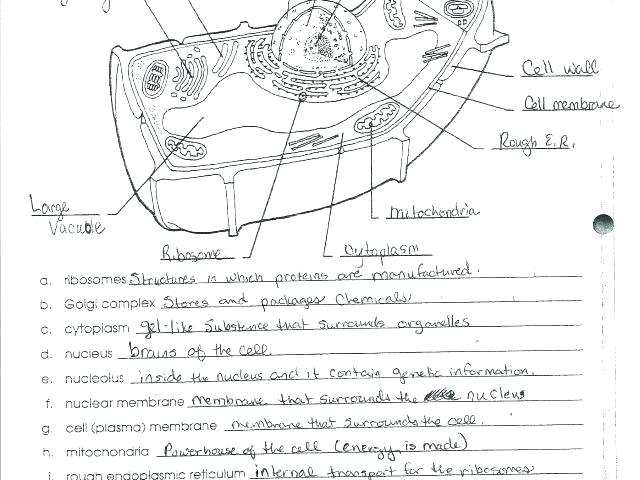 Cell wall
Cell membrane
Rough E.R.
Large
Vacuole
Mitochondria
Ribosome
Cytoplasm
a. ribosomes Structures in which proteins are manufactured.
b. Golgi complex Stores and packages Chemicals
c. cytoplasm gel-like Substance that surrounds organelles
d. nucleus brains of the cell.
e. nucleolus inside the nucleus and it contain genetic information.
f. nuclear membrane membrane that surrounds the nucleus
g. cell (plasma) membrane membrane that surrounds the cell.
h. mitochondria Powerhouse of the cell (energy is made)
i. rough endoplasmic reticulum internal transport for the ribosomes